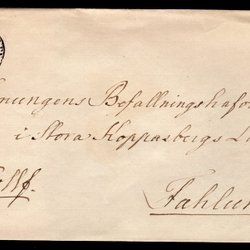 nungens Befallningshafv
i Stora Kopparbergs L
Fahlu